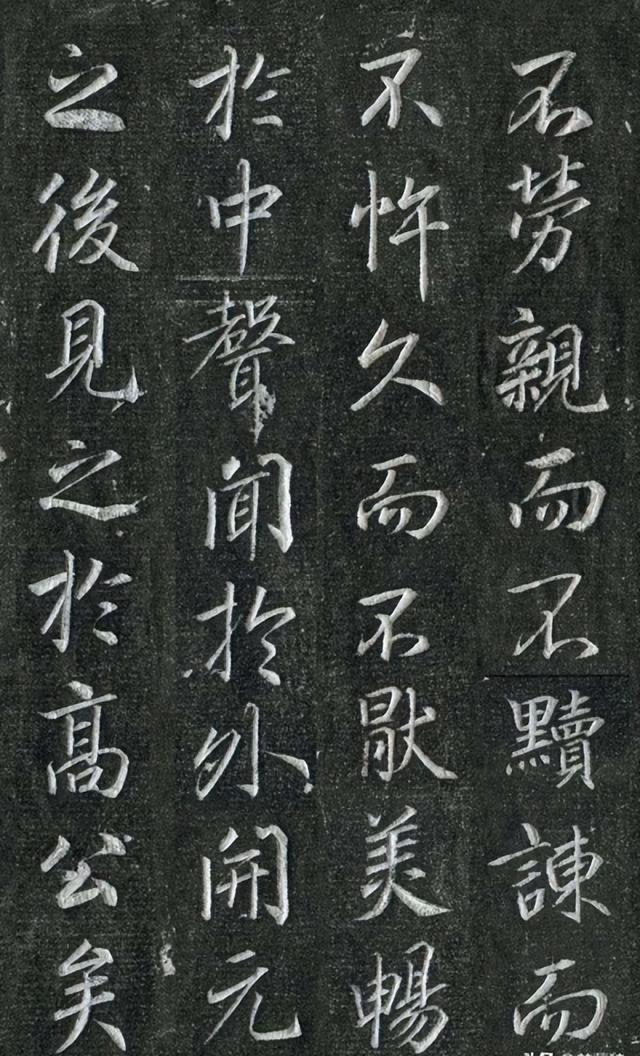 不劳親而不黷諫而
不忤久而不猒美暢
於中聲聞於外開元
之後見之於高公矣